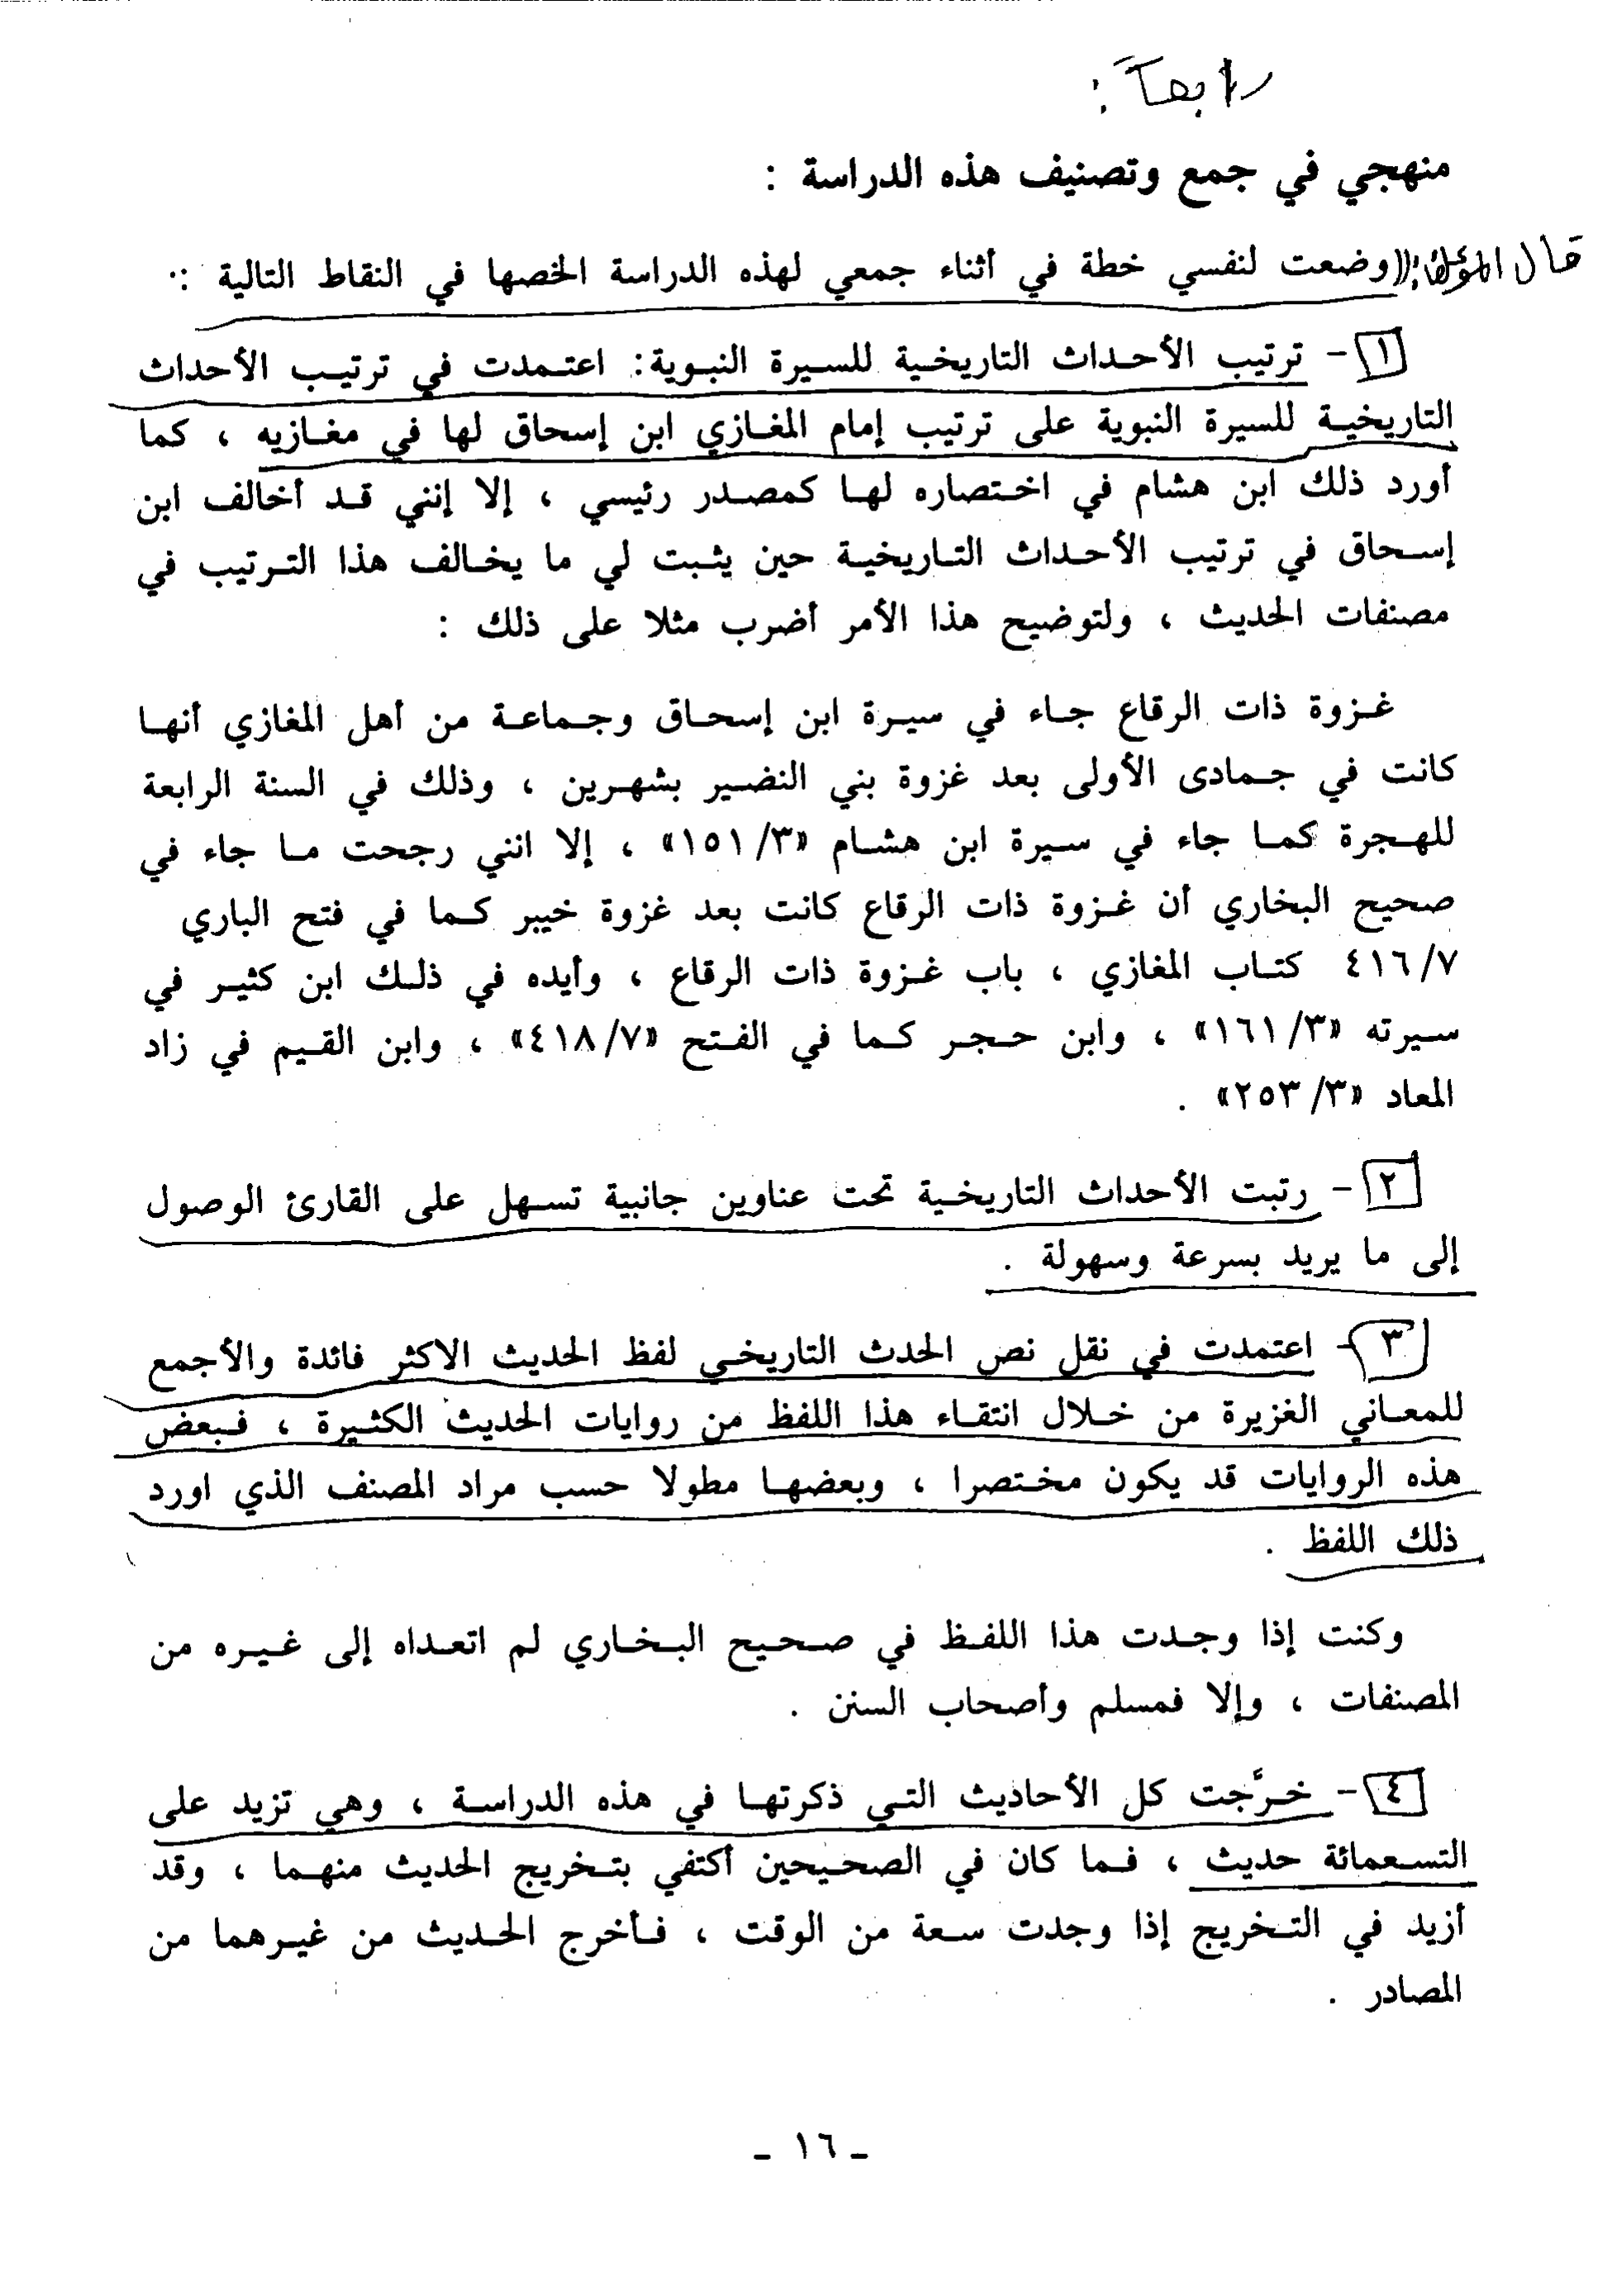 رابعاً :
منهجي في جمع وتصنيف هذه الدراسة :
قال المؤلف: ((وضعت لنفسي خطة في أثناء جمعي لهذه الدراسة الخصها في النقاط التالية :.
١ - ترتيب الأحداث التاريخية للسيرة النبوية: اعتمدت في ترتيب الأحداث
التاريخية للسيرة النبوية على ترتيب إمام المغازي ابن إسحاق لها في مغازيه ، كما
أورد ذلك ابن هشام في اختصاره لها كمصدر رئيسي ، إلا إنني قد أخالف ابن
إسحاق في ترتيب الأحداث التاريخية حين يثبت لي ما يخالف هذا الترتيب في
مصنفات الحديث ، ولتوضيح هذا الأمر أضرب مثلا على ذلك :
غزوة ذات الرقاع جاء في سيرة ابن إسحاق وجماعة من أهل المغازي أنها
كانت في جمادى الأولى بعد غزوة بني النضير بشهرين ، وذلك في السنة الرابعة
للهجرة كما جاء في سيرة ابن هشام «٣/ ١٥١» ، إلا انني رجحت ما جاء في
صحيح البخاري أن غزوة ذات الرقاع كانت بعد غزوة خيبر كما في فتح الباري
٧/ ٤١٦ كتاب المغازي ، باب غزوة ذات الرقاع ، وأيده في ذلك ابن كثير في
سيرته «٣/ ١٦١» ، وابن حجر كما في الفتح «٧/ ٤١٨» ، وابن القيم في زاد
المعاد «٣/ ٢٥٣» .
٢ - رتبت الأحداث التاريخية تحت عناوين جانبية تسهل على القارئ الوصول
إلى ما يريد بسرعة وسهولة .
٣ - اعتمدت في نقل نص الحدث التاريخي لفظ الحديث الاكثر فائدة والأجمع
للمعاني الغزيرة من خلال انتقاء هذا اللفظ من روايات الحديث الكثيرة ، فبعض
هذه الروايات قد يكون مختصرا ، وبعضها مطولا حسب مراد المصنف الذي اورد
ذلك اللفظ .
وكنت إذا وجدت هذا اللفظ في صحيح البخاري لم اتعداه إلى غيره من
المصنفات ، وإلا فمسلم وأصحاب السنن .
٤ - خرَّجت كل الأحاديث التي ذكرتها في هذه الدراسة ، وهي تزيد على
التسعمائة حديث ، فما كان في الصحيحين أكتفي بتخريج الحديث منهما ، وقد
أزيد في التخريج إذا وجدت سعة من الوقت ، فأخرج الحديث من غيرهما من
المصادر .
- ١٦ -